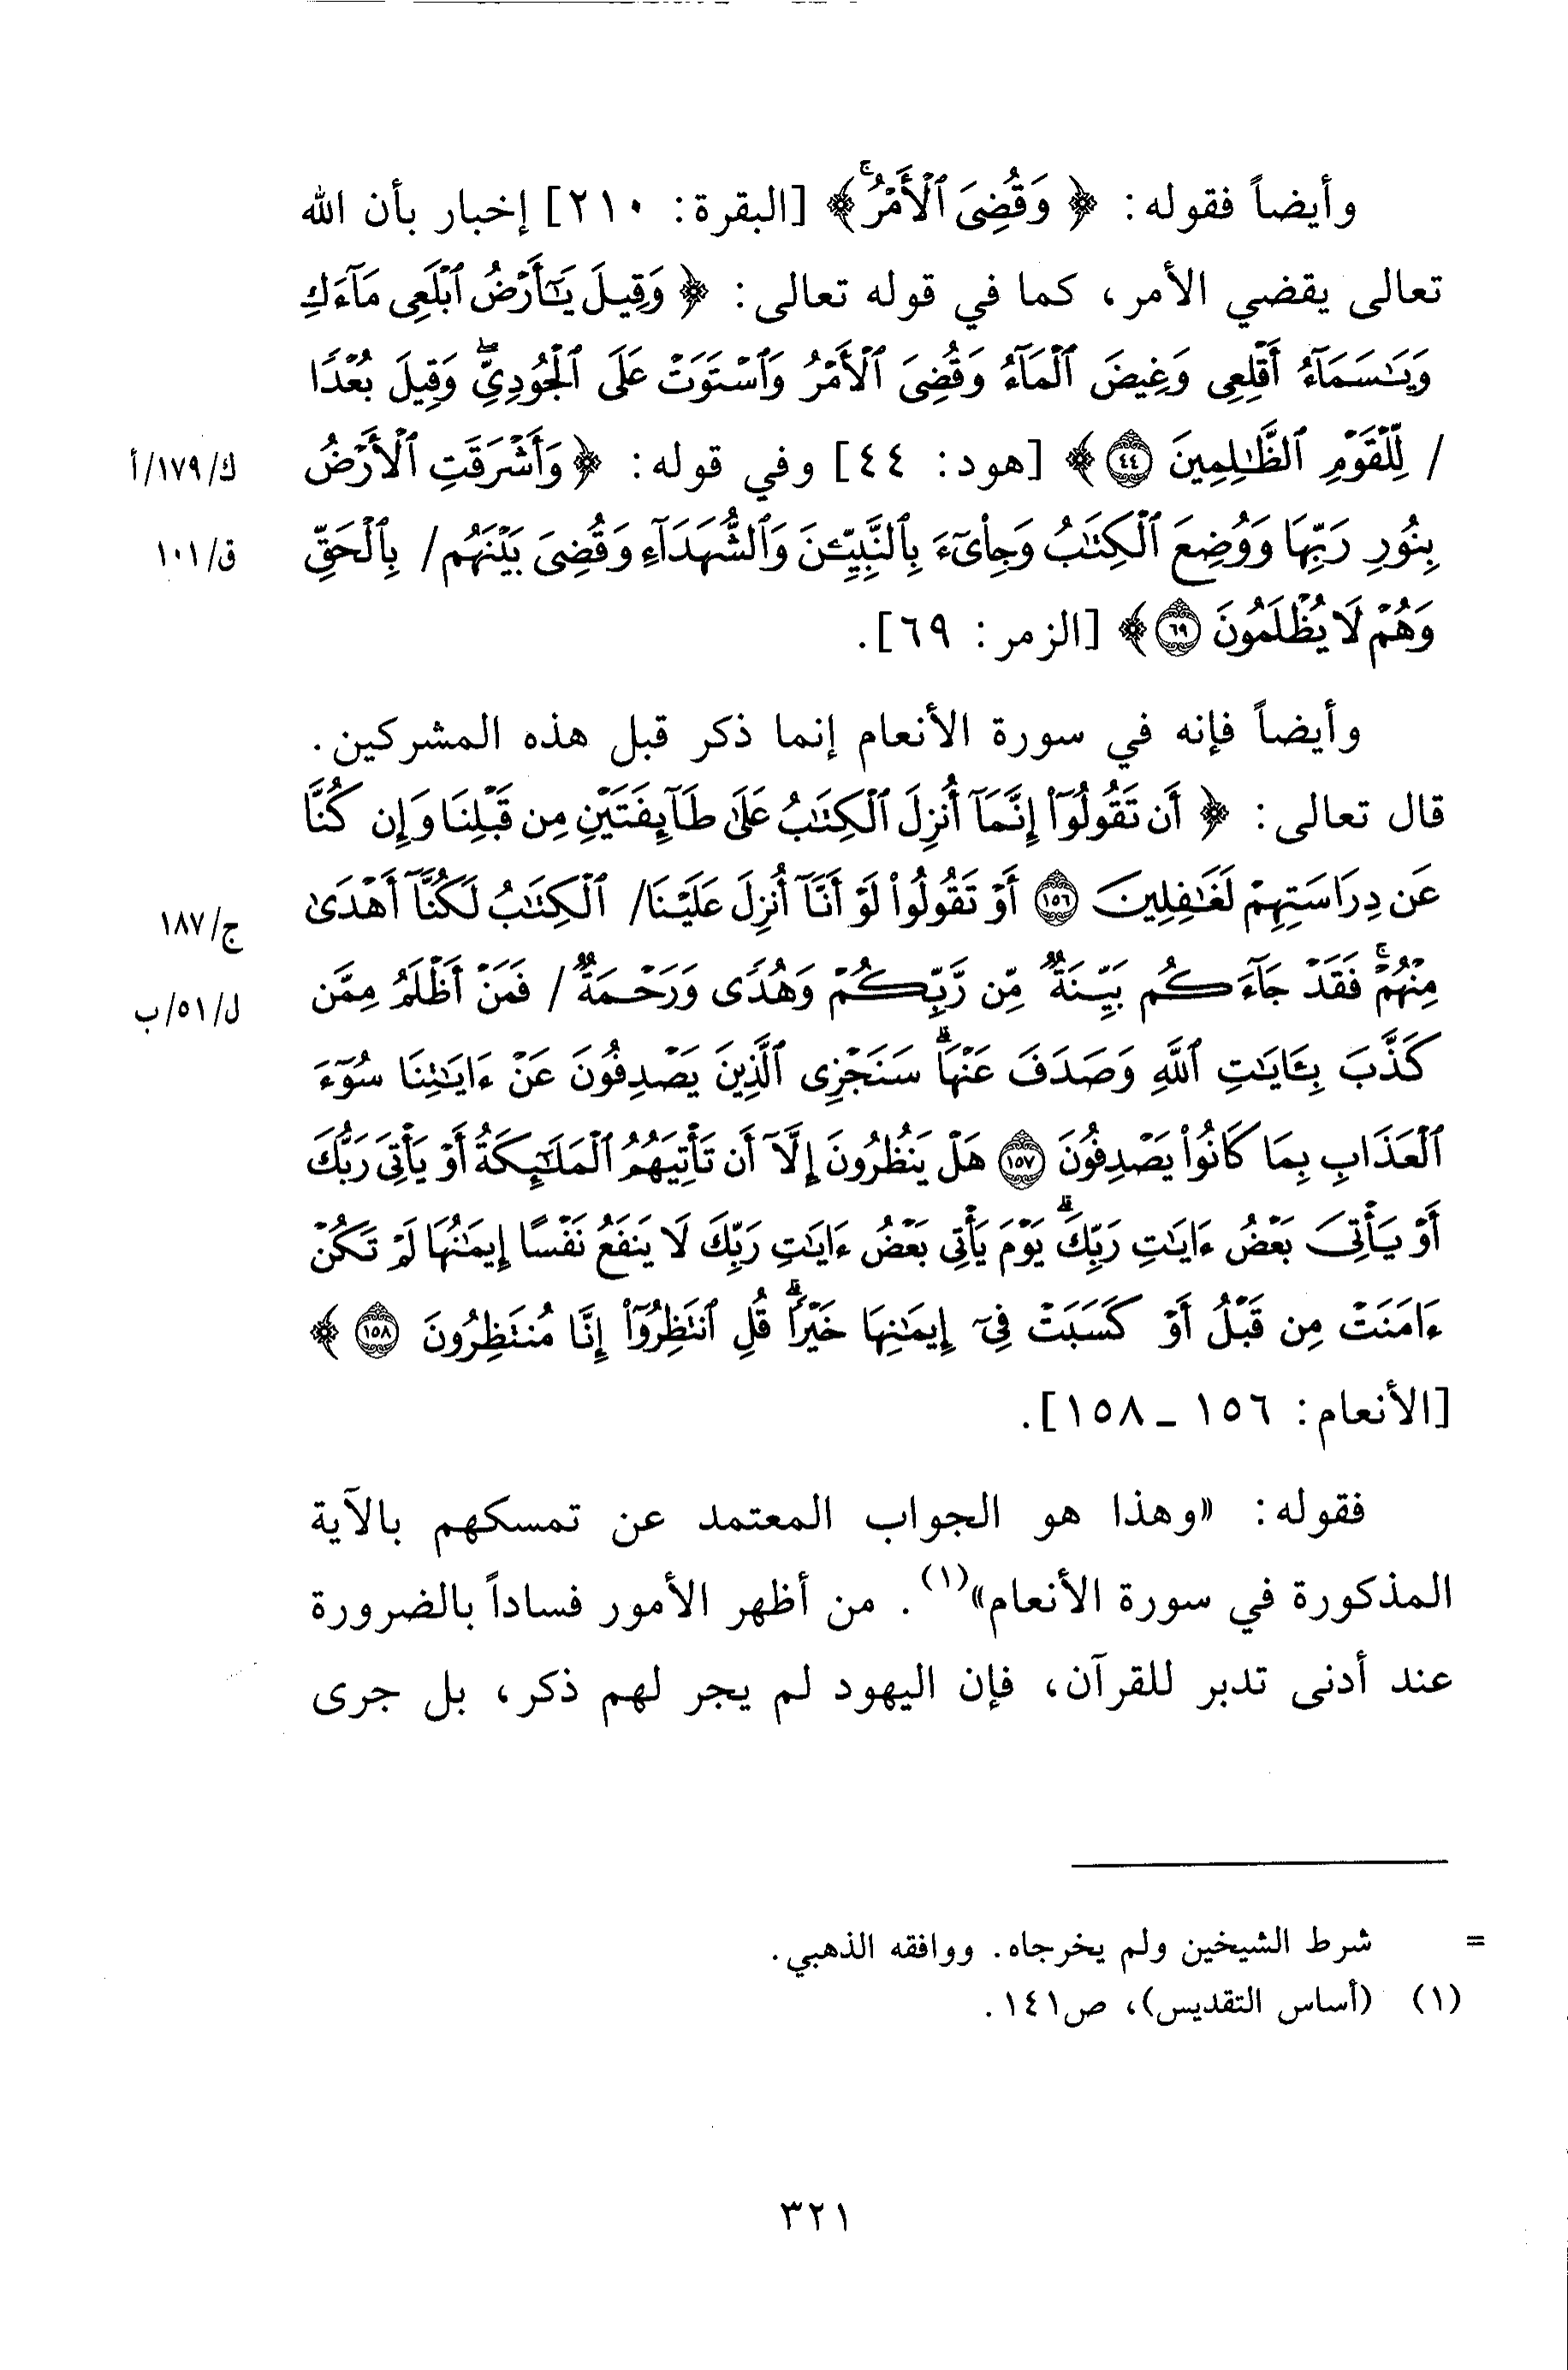 وأيضاً فقوله: ﴿ وَقُضِىَ ٱلْأَمْرُ ۚ ﴾ [البقرة: ٢١٠] إخبار بأن الله
تعالى يقضي الأمر، كما في قوله تعالى: ﴿ وَقِيلَ يَـٰٓأَرْضُ ٱبْلَعِى مَآءَكِ
وَيَـٰسَمَآءُ أَقْلِعِى وَغِيضَ ٱلْمَآءُ وَقُضِىَ ٱلْأَمْرُ وَٱسْتَوَتْ عَلَى ٱلْجُودِىِّ ۖ وَقِيلَ بُعْدًا
/ لِّلْقَوْمِ ٱلظَّـٰلِمِينَ ٤٤ ﴾ [هود: ٤٤] وفي قوله: ﴿ وَأَشْرَقَتِ ٱلْأَرْضُ
ك/١٧٩/أ
بِنُورِ رَبِّهَا وَوُضِعَ ٱلْكِتَـٰبُ وَجِا۟ىٓءَ بِٱلنَّبِيِّـۧنَ وَٱلشُّهَدَآءِ وَقُضِىَ بَيْنَهُم/ بِٱلْحَقِّ
ق/١٠١
وَهُمْ لَا يُظْلَمُونَ ٦٩ ﴾ [الزمر: ٦٩].
وأيضاً فإنه في سورة الأنعام إنما ذكر قبل هذه المشركين.
قال تعالى: ﴿ أَن تَقُولُوٓا۟ إِنَّمَآ أُنزِلَ ٱلْكِتَـٰبُ عَلَىٰ طَآئِفَتَيْنِ مِن قَبْلِنَا وَإِن كُنَّا
عَن دِرَاسَتِهِمْ لَغَـٰفِلِينَ ١٥٦ أَوْ تَقُولُوا۟ لَوْ أَنَّآ أُنزِلَ عَلَيْنَا/ ٱلْكِتَـٰبُ لَكُنَّآ أَهْدَىٰ
ج/١٨٧
مِنْهُمْ ۚ فَقَدْ جَآءَكُم بَيِّنَةٌ مِّن رَّبِّكُمْ وَهُدًى وَرَحْمَةٌ / فَمَنْ أَظْلَمُ مِمَّن
ل/٥١/ب
كَذَّبَ بِـَٔايَـٰتِ ٱللَّهِ وَصَدَفَ عَنْهَا ۗ سَنَجْزِى ٱلَّذِينَ يَصْدِفُونَ عَنْ ءَايَـٰتِنَا سُوٓءَ
ٱلْعَذَابِ بِمَا كَانُوا۟ يَصْدِفُونَ ١٥٧ هَلْ يَنظُرُونَ إِلَّآ أَن تَأْتِيَهُمُ ٱلْمَلَـٰٓئِكَةُ أَوْ يَأْتِىَ رَبُّكَ
أَوْ يَأْتِىَ بَعْضُ ءَايَـٰتِ رَبِّكَ ۗ يَوْمَ يَأْتِى بَعْضُ ءَايَـٰتِ رَبِّكَ لَا يَنفَعُ نَفْسًا إِيمَـٰنُهَا لَمْ تَكُنْ
ءَامَنَتْ مِن قَبْلُ أَوْ كَسَبَتْ فِىٓ إِيمَـٰنِهَا خَيْرًا ۗ قُلِ ٱنتَظِرُوٓا۟ إِنَّا مُنتَظِرُونَ ١٥٨ ﴾
[الأنعام: ١٥٦ ـ ١٥٨].
فقوله: «وهذا هو الجواب المعتمد عن تمسكهم بالآية
المذكورة في سورة الأنعام»(١). من أظهر الأمور فساداً بالضرورة
عند أدنى تدبر للقرآن، فإن اليهود لم يجر لهم ذكر، بل جرى
= شرط الشيخين ولم يخرجاه. ووافقه الذهبي.
(١) (أساس التقديس)، ص١٤١.
٣٢١